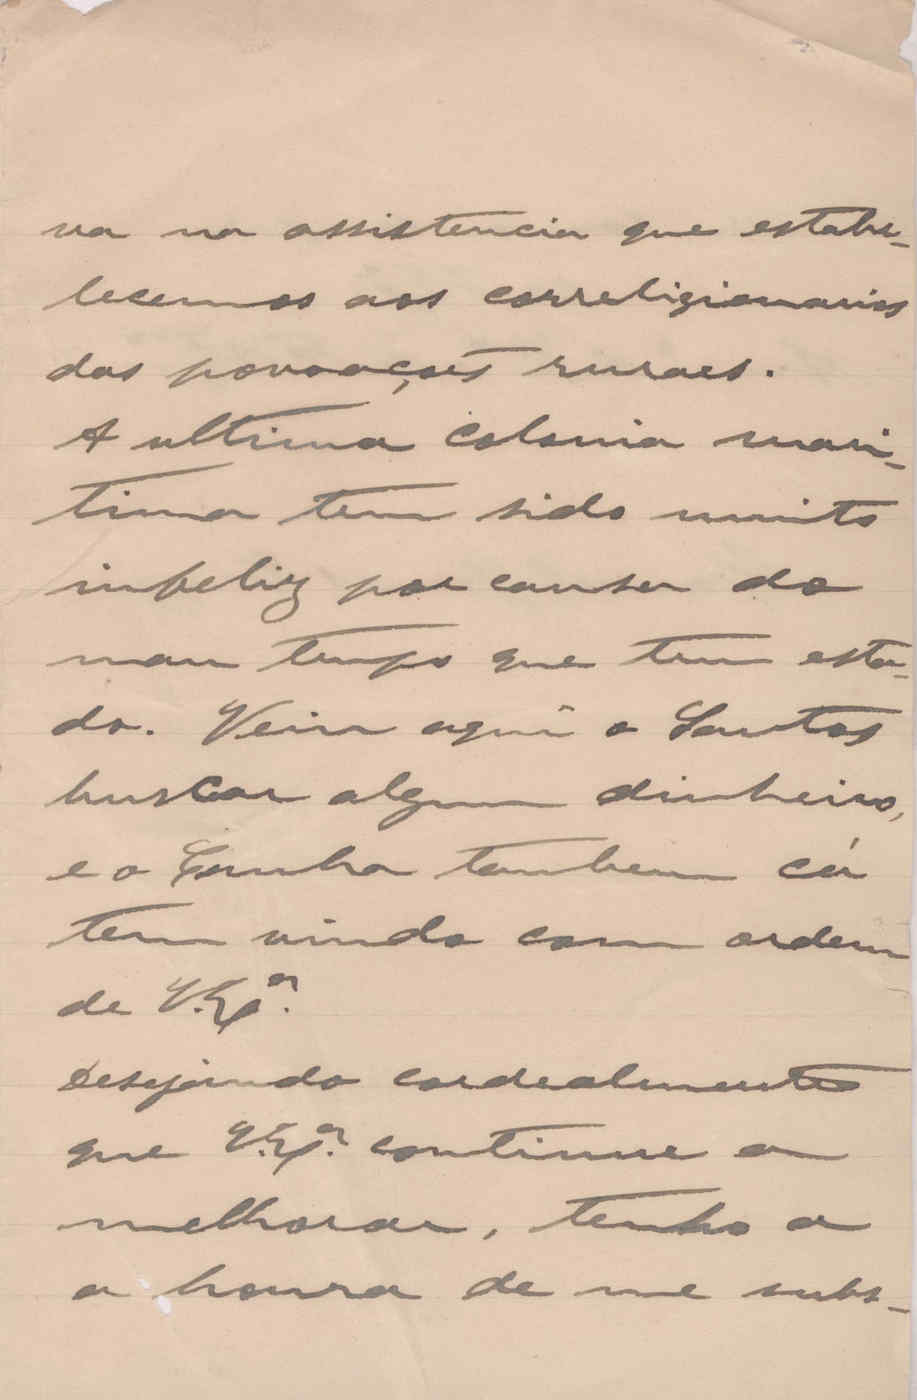 va na assistencia que estabe-
lecemos aos correligionarios
das povoações ruraes.
A ultima colonia mari-
tima tem sido muito
infeliz por causa do
mau tempo que tem esta-
do. Veiu aqui o Santos
buscar algum dinheiro,
e o Cunha tambem cá
tem vindo com ordem
de V. Exª.
Desejando cordealmente
que V. Exª. continue a
melhorar, tenho a
a honra de me subs-